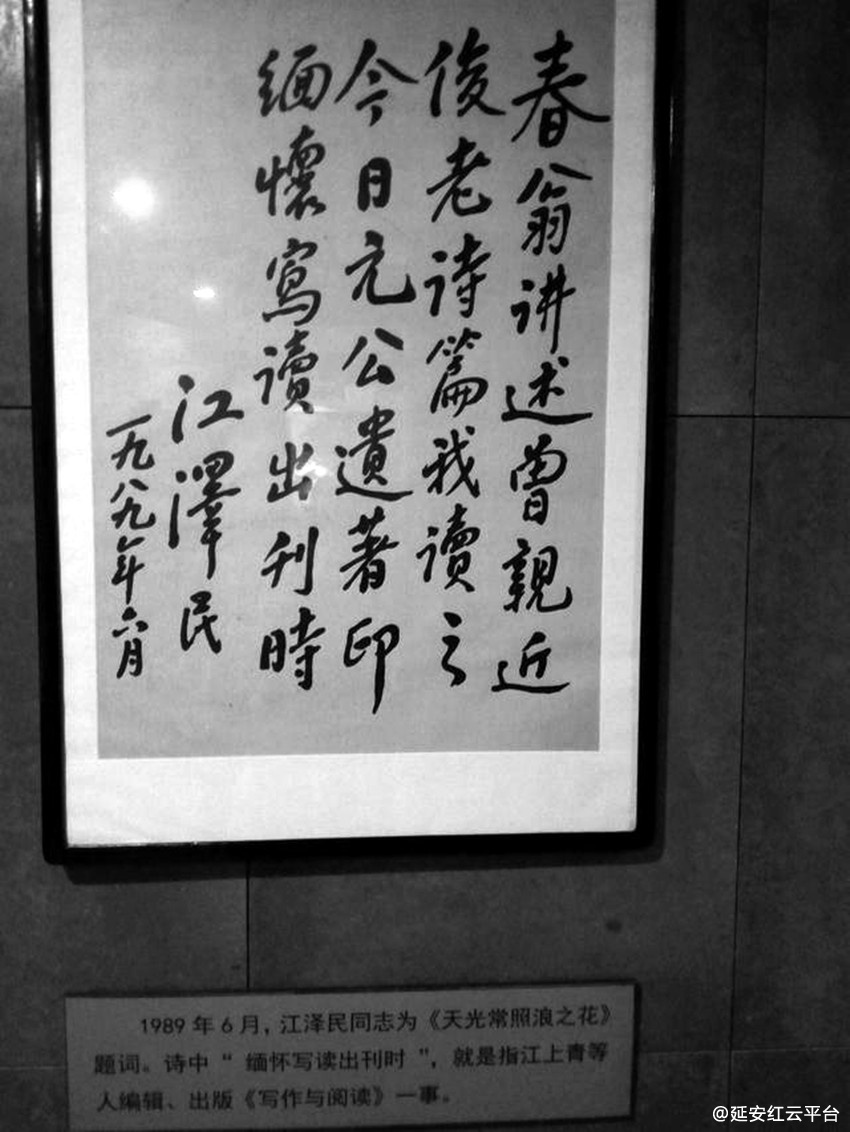 春翁讲述曾親近
俊老诗篇我读之
今日元公遺著印
缅懷寫讀出刊時
江澤民
一九八九年六月
1989年6月，江泽民同志为《天光常照浪之花》
题词。诗中“缅怀写读出刊时”，就是指江上青等
人编辑、出版《写作与阅读》一事。
@延安红云平台